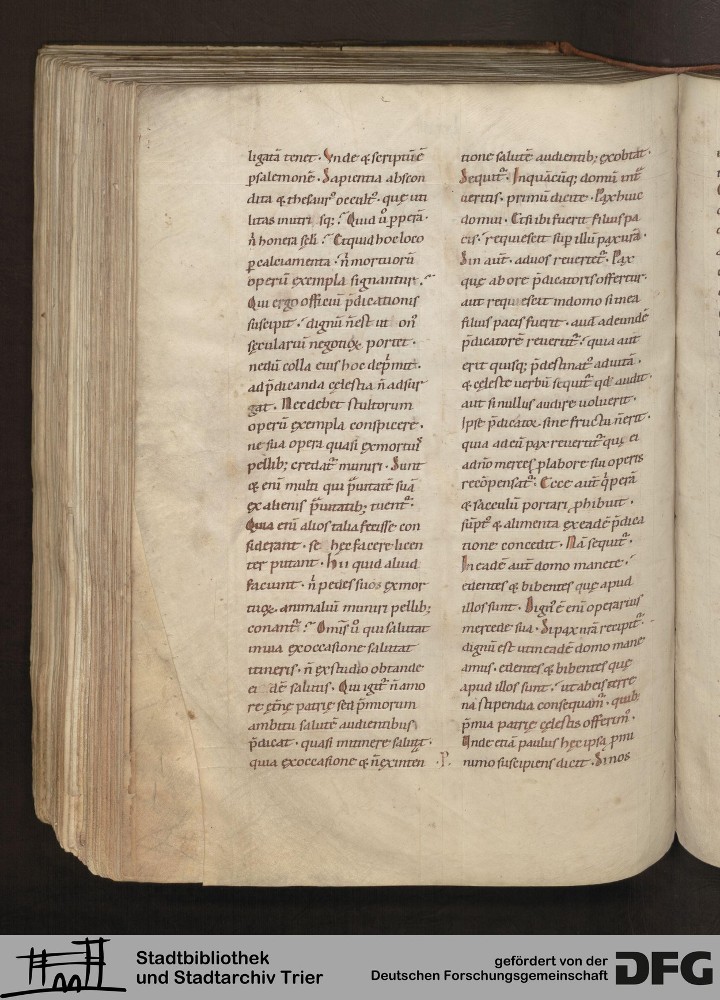 ligatā tenet. Vnde & scriptū ē
psalemonē. Sapientia abscon
dita & thesaurꝰ occultꝰ. quę uti
litas in utrisq;? Quid ū p pera.
n̄ honera sc̄li? Et quid hoc loco
p calciamenta. n̄ mortuorū
operū exempla signantur?
Qui ergo officiū p̄dicationis
suscipit. dignū n̄ est ut onꝰ
sęculariū negotioꝝ portet.
ne dū colla eius hoc dep̄mit.
ad p̄dicanda cęlestia n̄ adsur
gat. Nec debet stultorum
operū exempla conspicere.
ne sua opera quasi ex mortuis
pellib; credat muniri. Sunt
& enī multi qui prauitatē suā
ex alienis prauitatib; tuentur.
Quia enī alios talia fecisse con
siderant. se hęc facere licen
ter putant. Hii quid aliud
faciunt. n̄ pedes suos ex mor
tuoꝝ animaliū muniri pellib;
conantur? Omīs ū qui salutat
in uia ex occasione salutat
itineris. n̄ ex studio obtande
ei dē salutis. Qui igit n̄ amo
re ęt̄nę patrię sed p̄miorum
ambitu salutē audientibus
p̄dicat. quasi in itinere salutat.
quia ex occasione & n̄ ex inten
tione salutē audientib; exobtat.
Sequitur. In quācūq; domū int
ueritis. primū dicite. Pax huic
domui. Et si ibi fuerit filius pa
cis. requiescit sup illū pax urā.
Sin aut̄. ad uos reuertet. Pax
quę ab ore p̄dicatoris offertur.
aut requiescit in domo si in ea
filius pacis fuerit. aut ad eundē
p̄dicatorē reuertitur. quia aut
erit quisq; p̄destinatꝰ ad uitā.
& cęleste uerbū sequit qd audit.
aut si nullus audire uoluerit.
Ipse p̄dicator sine fructu n̄ erit.
quia ad eū pax reuertit quę ei
a dn̄o merces p labore sui operis
recōpensat. Ecce aut̄ q pera
& sacculū portari phibuit.
sūptꝰ & alimenta ex eadē p̄dica
tione concedit. Nā sequit.
In eadē aut̄ domo manete.
edentes & bibentes quę apud
illos sunt. Dignꝰ ē enī operarius
mercede sua. Si pax urā recipit.
dignū est ut in eadē domo mane
amus. edentes & bibentes quę
apud illos sunt. ut ab eis terre
na stipendia consequam. quib;
p̄mia patrię cęlestis offerim.
Vnde etiā paulus hęc ipsa p mi
nimo suscipiens dicit. Si nos
Stadtbibliothek
und Stadtarchiv Trier
gefördert von der
Deutschen Forschungsgemeinschaft
DFG